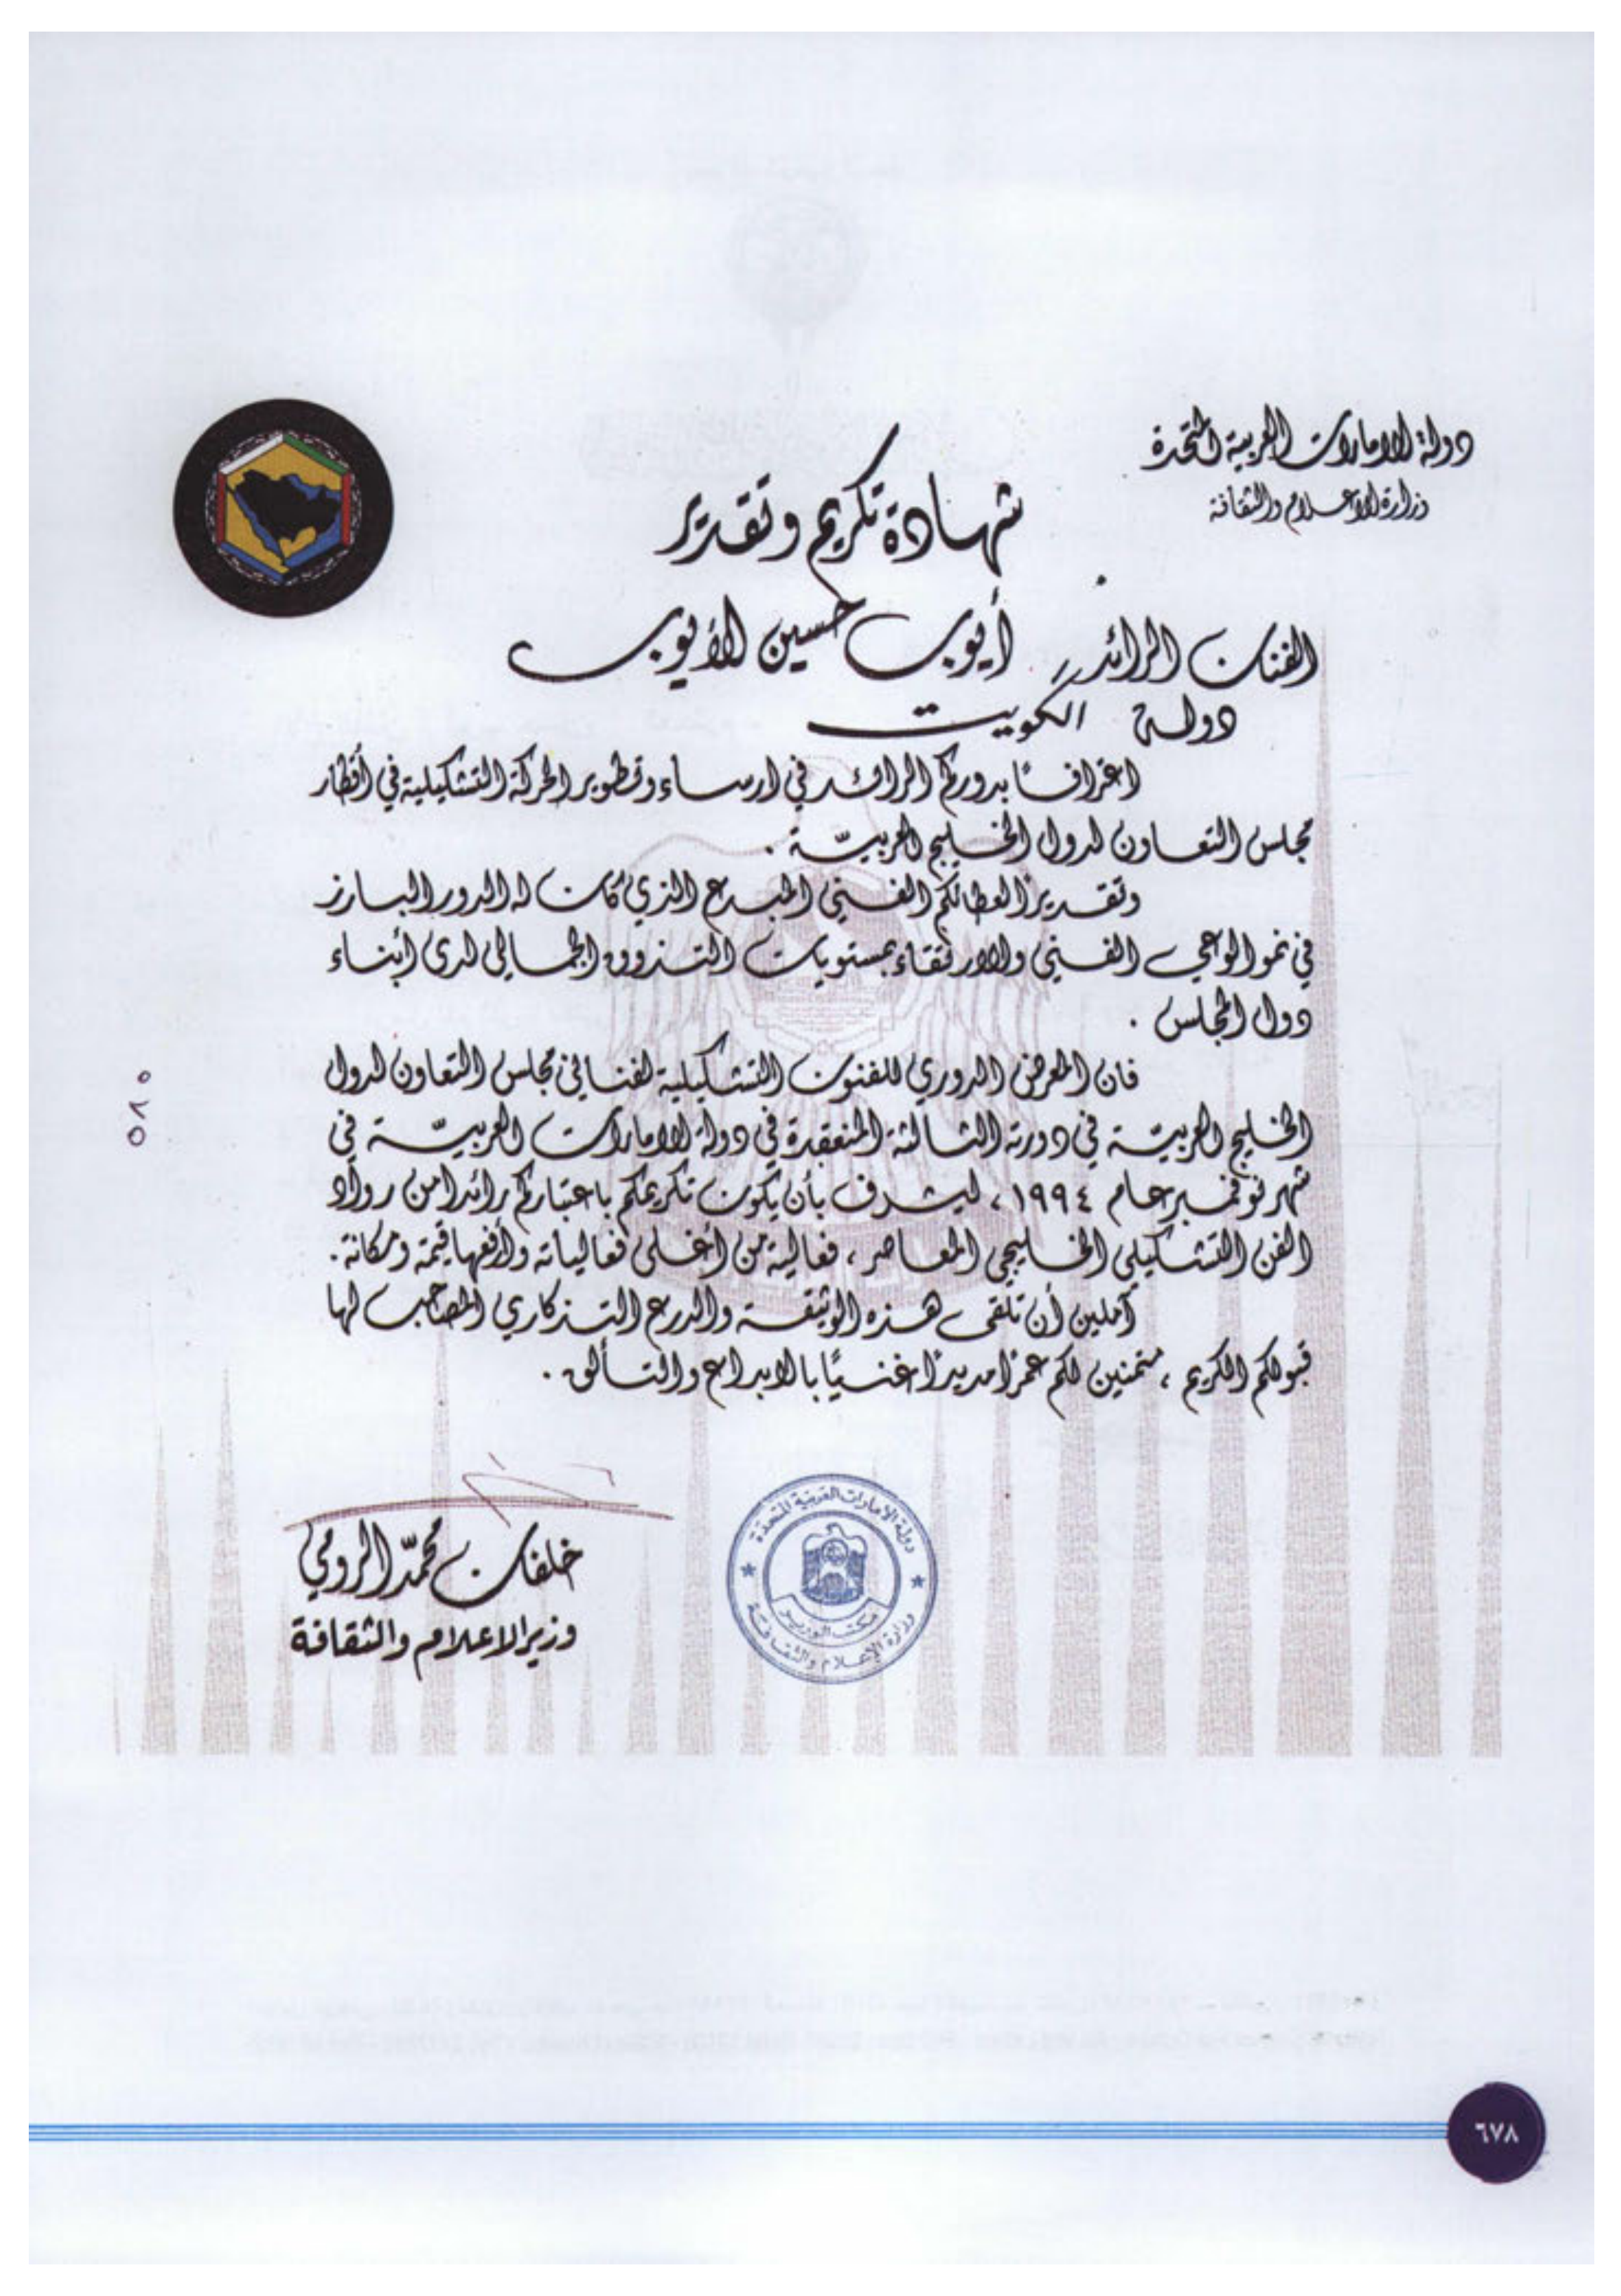 دولة الامارات العربية المتحدة
وزارة الاعلام والثقافة
شهادة تكريم وتقدير
الفنان الرائد أيوب حسين الأيوب
دولة الكويت
اعترافًا بدوركم الرائد في ارساء وتطوير الحركة التشكيلية في أقطار
مجلس التعاون لدول الخليج العربيّة .
وتقديرًا لعطائكم الفني المبدع الذي كان له الدور البارز
في نمو الوعي الفني والارتقاء بمستويات التذوق الجمالي لدى أبناء
دول المجلس .
فان المعرض الدوري للفنون التشكيلية لفناني مجلس التعاون لدول
الخليج العربيّة في دورته الثالثة المنعقدة في دولة الامارات العربيّة في
شهر نوفمبر عام ١٩٩٤ ، ليشرف بأن يكون تكريمكم باعتباركم رائدا من رواد
الفن التشكيلي الخليجي المعاصر ، فعالية من أغلى فعالياته وأرفعها قيمة ومكانة .
آملين أن تلقى هذه الوثيقة والدرع التذكاري المصاحب لها
قبولكم الكريم ، متمنين لكم عمرًا مديدًا غنيًا بالابداع والتألق .
دولة الامارات العربية المتحدة
مكتب الوزير
وزارة الإعلام والثقافة
خلفان محمّد الرومي
وزير الاعلام والثقافة
٦٧٨